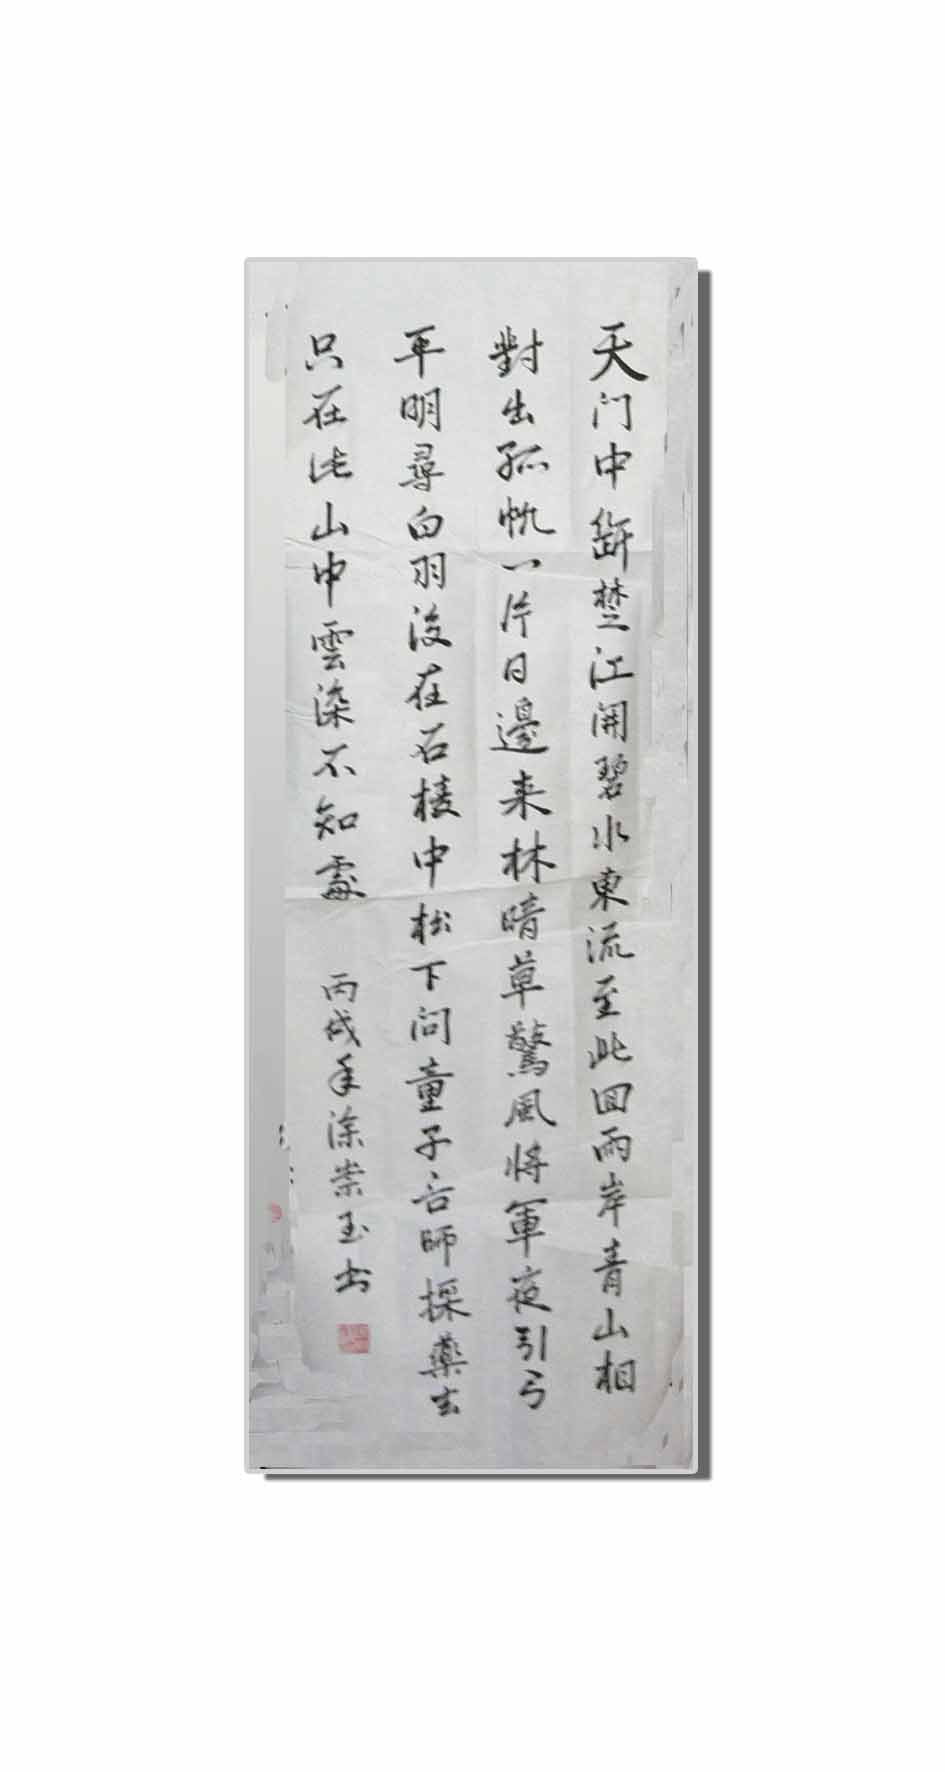 天门中斷楚江開碧水東流至此回兩岸青山相
對出孤帆一片日邊来林暗草驚風將軍夜引弓
平明尋白羽沒在石棱中松下问童子言師採藥去
只在此山中雲深不知處 丙戌年涂崇玉书